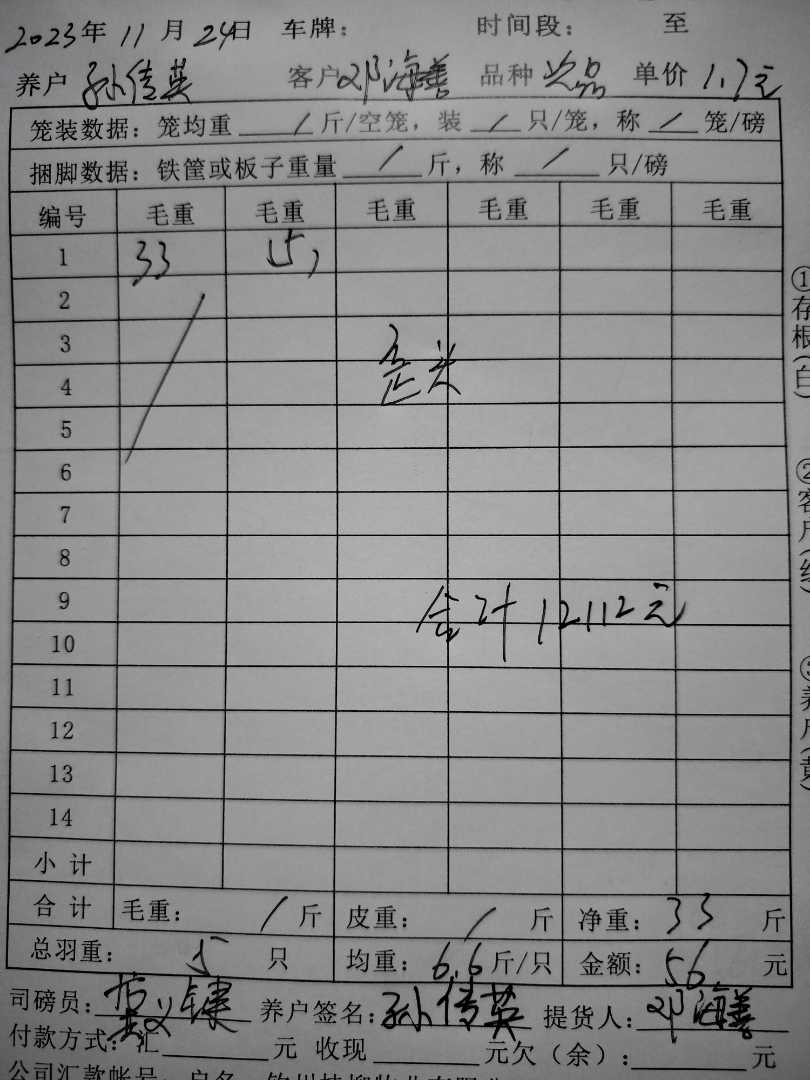 2023年 11 月 24日 车牌: 时间段: 至
养户 孙倩英 客户 邓海善 品种 次品 单价 1.7元
笼装数据: 笼均重 / 斤/空笼, 装 / 只/笼, 称 / 笼/磅
捆脚数据: 铁筐或板子重量 / 斤, 称 / 只/磅
编号 毛重 毛重 毛重 毛重 毛重 毛重
1 33 5,
2
3
歪头
4
5
6
7
8
9
合计 12112元
10
11
12
13
14
小计
合计 毛重: / 斤 皮重: / 斤 净重: 33 斤
总羽重: 5 只 均重: 6.6 斤/只 金额: 56 元
司磅员: 养户签名: 孙倩英 提货人: 邓海善
付款方式: 汇 元 收现 元欠(余): 元
公司汇款帐号: 户名:
①存根(白)
②客户(红)
③养户(黄)